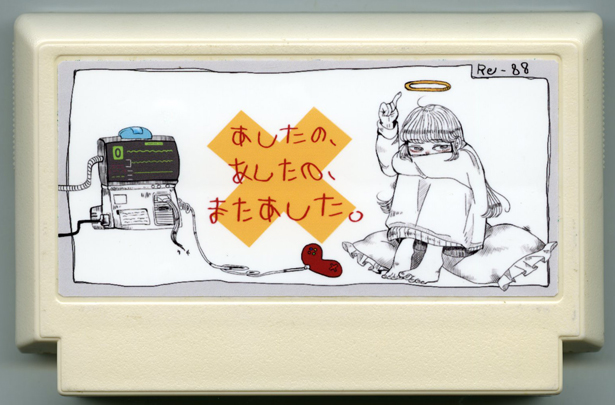 Re-88
あしたの、
あしたの、
またあした。
0